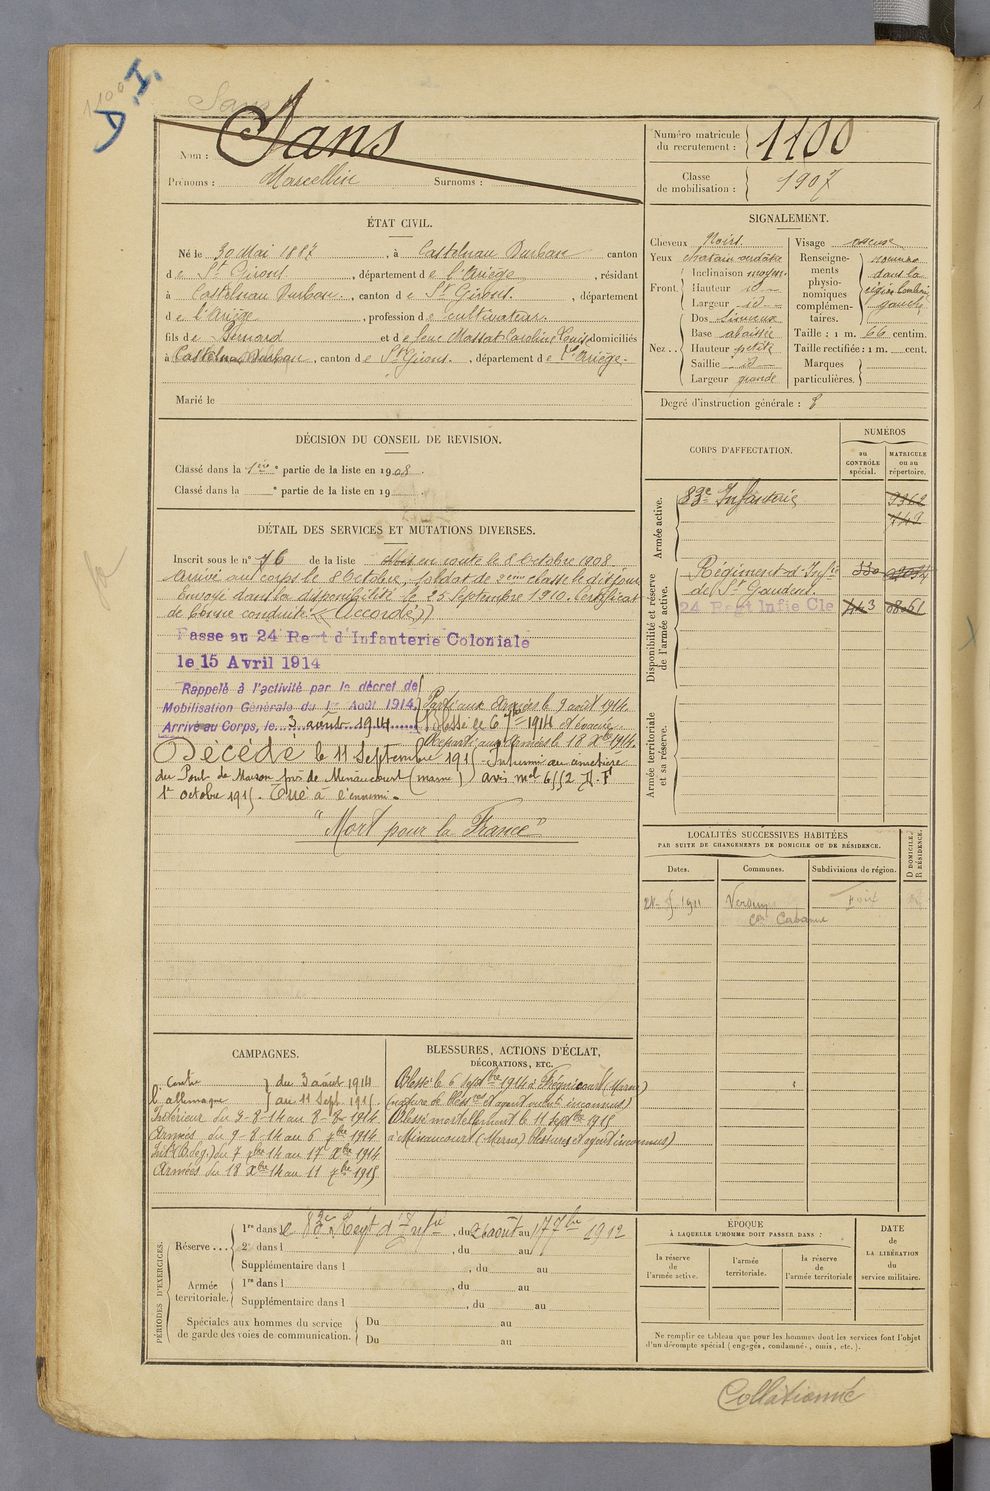 D.I.
1100
Sans
Nom : Sans
Prénoms : Marcellin Surnoms :
Numéro matricule du recrutement : 1100
Classe de mobilisation : 1907
ÉTAT CIVIL.
Né le 30 Mai 1887, à Castelnau Durban canton
de St Girons, département de l'Ariège, résidant
à Castelnau Durban, canton de St Girons, département
de l'Ariège, profession de cultivateur
fils de Bernard et de feue Massat Caroline domiciliés
à Castelnau Durban, canton de St Girons, département de l'Ariège.
Marié le
SIGNALEMENT.
Cheveux Noirs
Yeux chatain verdâtre
Front. Inclinaison moyen.
Hauteur id
Largeur id
Nez.. Dos Sinueux
Base abaissée
Hauteur petite
Saillie id
Largeur grande
Visage osseux
Renseignements physionomiques complémentaires. dans la région gauche
Taille : 1 m. 66 centim.
Taille rectifiée : 1 m. cent.
Marques particulières.
Degré d'instruction générale : 3
DÉCISION DU CONSEIL DE REVISION.
Classé dans la 1ère partie de la liste en 1908.
Classé dans la e partie de la liste en 19
CORPS D'AFFECTATION.
NUMÉROS
au CONTRÔLE spécial.
MATRICULE ou au répertoire.
Armée active.
83e Infanterie
Disponibilité et réserve de l'armée active.
Régiment d'Infie de St Gaudens.
24 Regt Infie Cle 443
Armée territoriale et sa réserve.
DÉTAIL DES SERVICES ET MUTATIONS DIVERSES.
Inscrit sous le n° 76 de la liste Mis en route le 8 Octobre 1908.
Arrivé au corps le 8 Octobre, soldat de 2ème classe le dit jour
Envoyé dans la disponibilité le 25 Septembre 1910. Certificat
de bonne conduite « Accordé »
Passe au 24 Regt d'Infanterie Coloniale
le 15 Avril 1914
Rappelé à l'activité par le décret de
Mobilisation Générale du 1er Août 1914.
Arrivé au Corps, le 3 août 1914
Parti aux Armées le 9 août 1914.
Blessé le 6 7bre 1914 et évacué
Reparti aux Armées le 18 Xbre 1914.
Décédé le 11 Septembre 1915. Inhumé au cimetière
du Pont de Maison près de Minaucourt (marne) avis mel 6552 D.F
1er octobre 1915. Tué à l'ennemi.
"Mort pour la France"
LOCALITÉS SUCCESSIVES HABITÉES
PAR SUITE DE CHANGEMENTS DE DOMICILE OU DE RÉSIDENCE.
Dates. Communes. Subdivisions de région. D DOMICILE. R RÉSIDENCE.
1911 Verdun Foix
Con Cabanne
CAMPAGNES.
Contre l'allemagne } du 3 août 1914
au 11 Sept. 1915.
Intérieur du 3-8-14 au 8-8-1914
Armées du 9-8-14 au 6 7bre 1914
Intr (B. dég.) du 7 7bre 14 au 17 Xbre 1914
Armées du 18 Xbre 14 au 11 7bre 1915
BLESSURES, ACTIONS D'ÉCLAT,
DÉCORATIONS, ETC.
Blessé le 6 Septbre 1914 à Frégnicourt (Marne)
(nature de blessres et agent vulnt inconnus)
Blessé mortellement le 11 Septbre 1915
à Minaucourt (Marne) blessures et agent inconnus)
PÉRIODES D'EXERCICES.
Réserve... 1re dans le 83e Régt d'Infie, du 26 août au 17 7bre 1912
2e dans l , du au
Supplémentaire dans l , du au
Armée territoriale. 1re dans l , du au
Supplémentaire dans l , du au
Spéciales aux hommes du service de garde des voies de communication. Du au
Du au
ÉPOQUE
À LAQUELLE L'HOMME DOIT PASSER DANS :
la réserve de l'armée active.
l'armée territoriale.
la réserve de l'armée territoriale
DATE DE LA LIBÉRATION du service militaire.
Ne remplir ce tableau que pour les hommes dont les services font l'objet
d'un décompte spécial (engagés, condamnés, omis, etc.).
Collationné